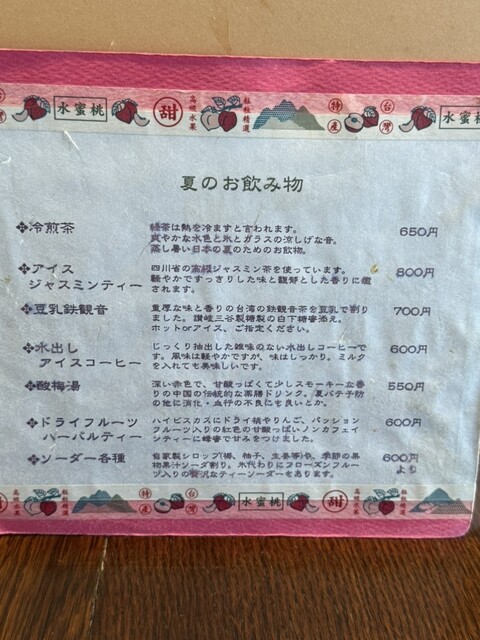 水蜜桃
甜
高級水果
粒粒精選
特産
台灣
水蜜
夏のお飲み物
❖冷煎茶
緑茶は熱を冷ますと言われます。
爽やかな水色と氷とガラスの涼しげな音。
蒸し暑い日本の夏のためのお飲物。
650円
❖アイス
ジャスミンティー
四川省の高級ジャスミン茶を使っています。
軽やかですっきりした味と観賞とした香りに癒
されます。
800円
❖豆乳鉄観音
重厚な味と香りの台湾の鉄観音茶を豆乳で割り
ました。讃岐三谷製糖製の白下糖蜜添え。
ホットorアイス、ご指定ください。
700円
❖水出し
アイスコーヒー
じっくり抽出した雑味のない水出しコーヒーで
す。風味は軽やかですが、味はしっかり。ミルク
を入れても美味しいです。
600円
❖酸梅湯
深い赤色で、甘酸っぱくて少しスモーキーな香
りの中国の伝統的な薬膳ドリンク。夏バテ予防
の他に消化・血行の不良にも良いとか。
550円
❖ドライフルーツ
ハーバルティー
ハイビスカスにドライ桃やりんご、パッション
フルーツ入りの紅色の甘酸っぱいノンカフェイ
ンティーに蜂蜜で甘みをつけました。
600円
❖ソーダー各種
自家製シロップ(梅、柚子、生姜等)や、季節の果
物果汁ソーダ割り。氷代わりにフローズンフルー
ツ入りの贅沢なティーソーダーもあります。
600円
より
高級水果
粒粒精選
特産
台灣
水蜜桃
甜
高級水果
粒粒精選